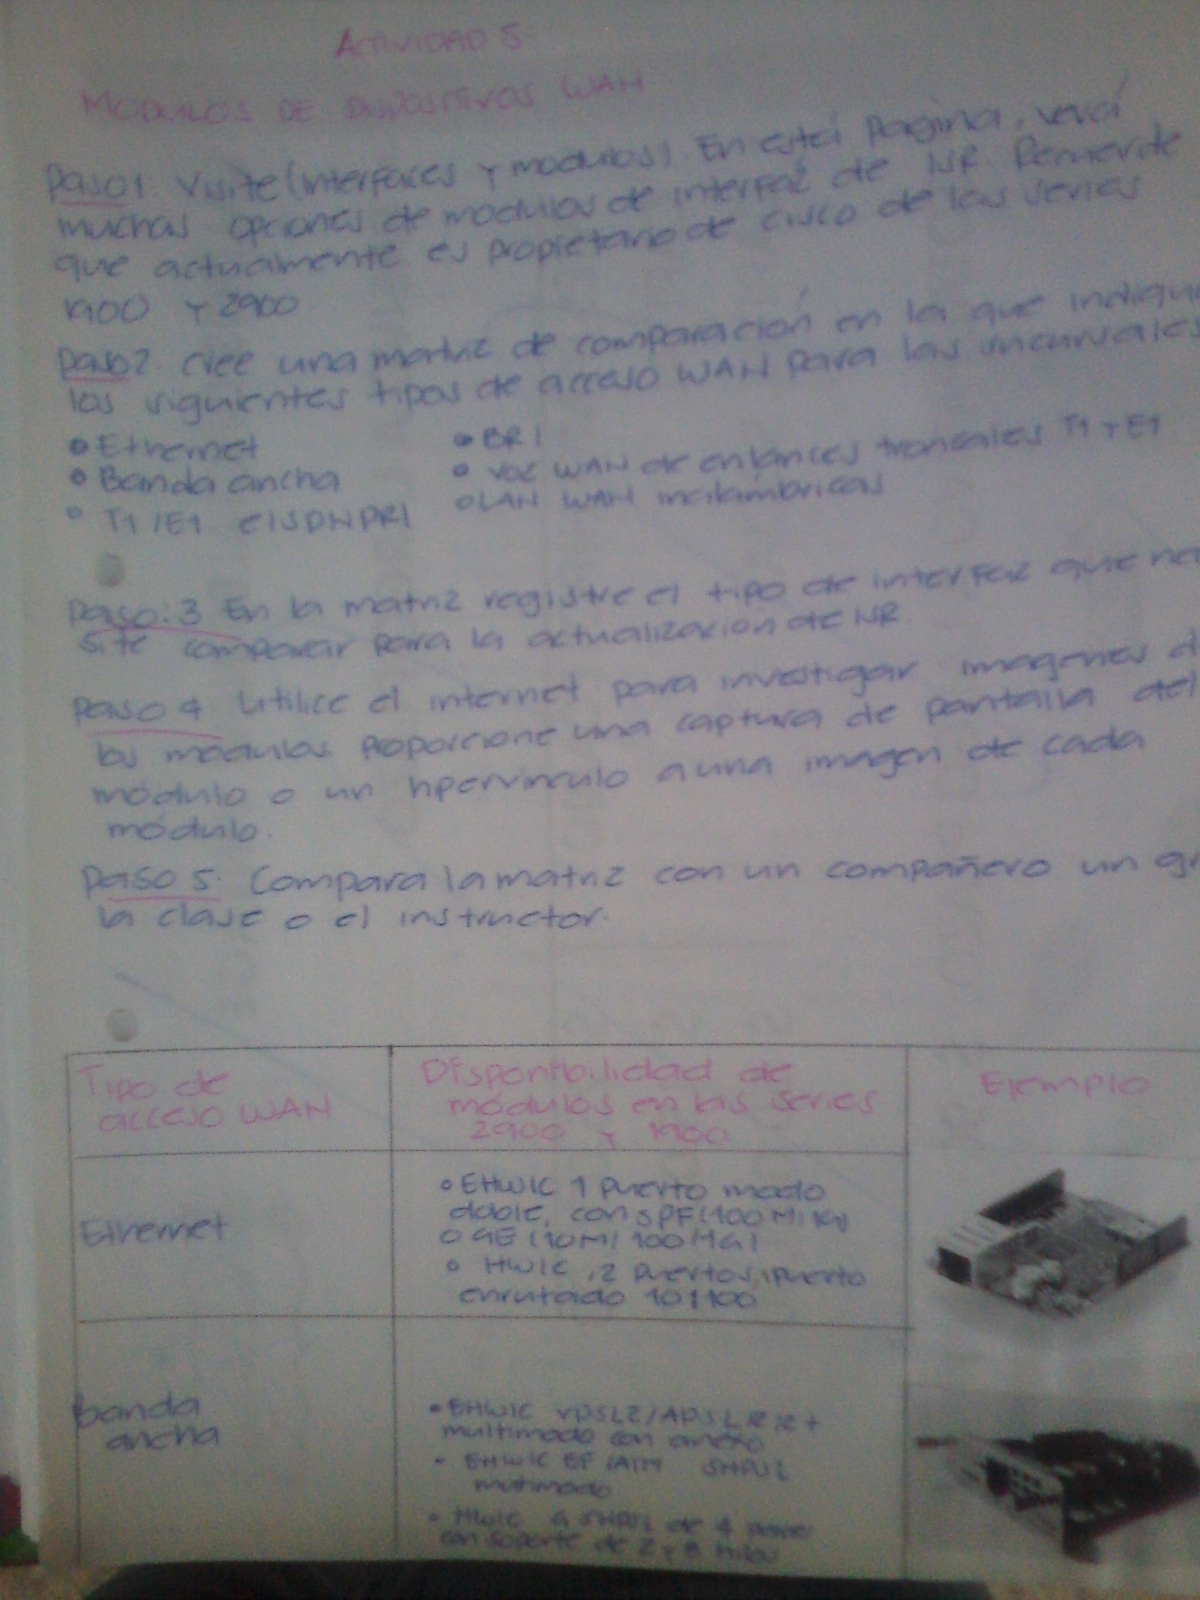 Actividad 5
Modulos de dispositivos WAN
Paso1. Visite (interfaces y modulos). En esta pagina, verá
muchas opciones de módulos de interfaz de ISR. Remuerde
que actualmente es propietario de cisco de las series
1900 y 2900
Paso2. cree una matriz de comparación en la que indique
los siguientes tipos de acceso WAN para las sucursales
• Ethernet
• Banda ancha
• T1/E1 e ISDN PRI
• BRI
• voz WAN de enlances troncales T1 y E1
• LAN WAN inalámbricas
Paso:3 En la matriz registre el tipo de interfaz que nece
site comparar para la actualización de ISR
Paso 4 Utilice el internet para investigar imagenes d
los modulos proporcione una captura de pantalla del
módulo o un hipervinculo a una imagen de cada
módulo.
Paso 5. Compara la matriz con un compañero un gr
la clase o el instructor.
Tipo de
acceso WAN
Disponibilidad de
módulos en las series
2900 y 1900
Ejemplo
Ethernet
• EHWIC 1 puerto modo
doble, con SPF (100M/1G)
O GE (10M/100/1G)
• HWIC, 2 puertos, puerto
enrutado 10/100
Banda
ancha
• EHWIC VDSL2/ADSL 2/2+
multimodo con anexo
• EHWIC EF/ATM SHDSL
multimodo
• HWIC G.SHDSL de 4
con soporte de 2 y 8 hilos